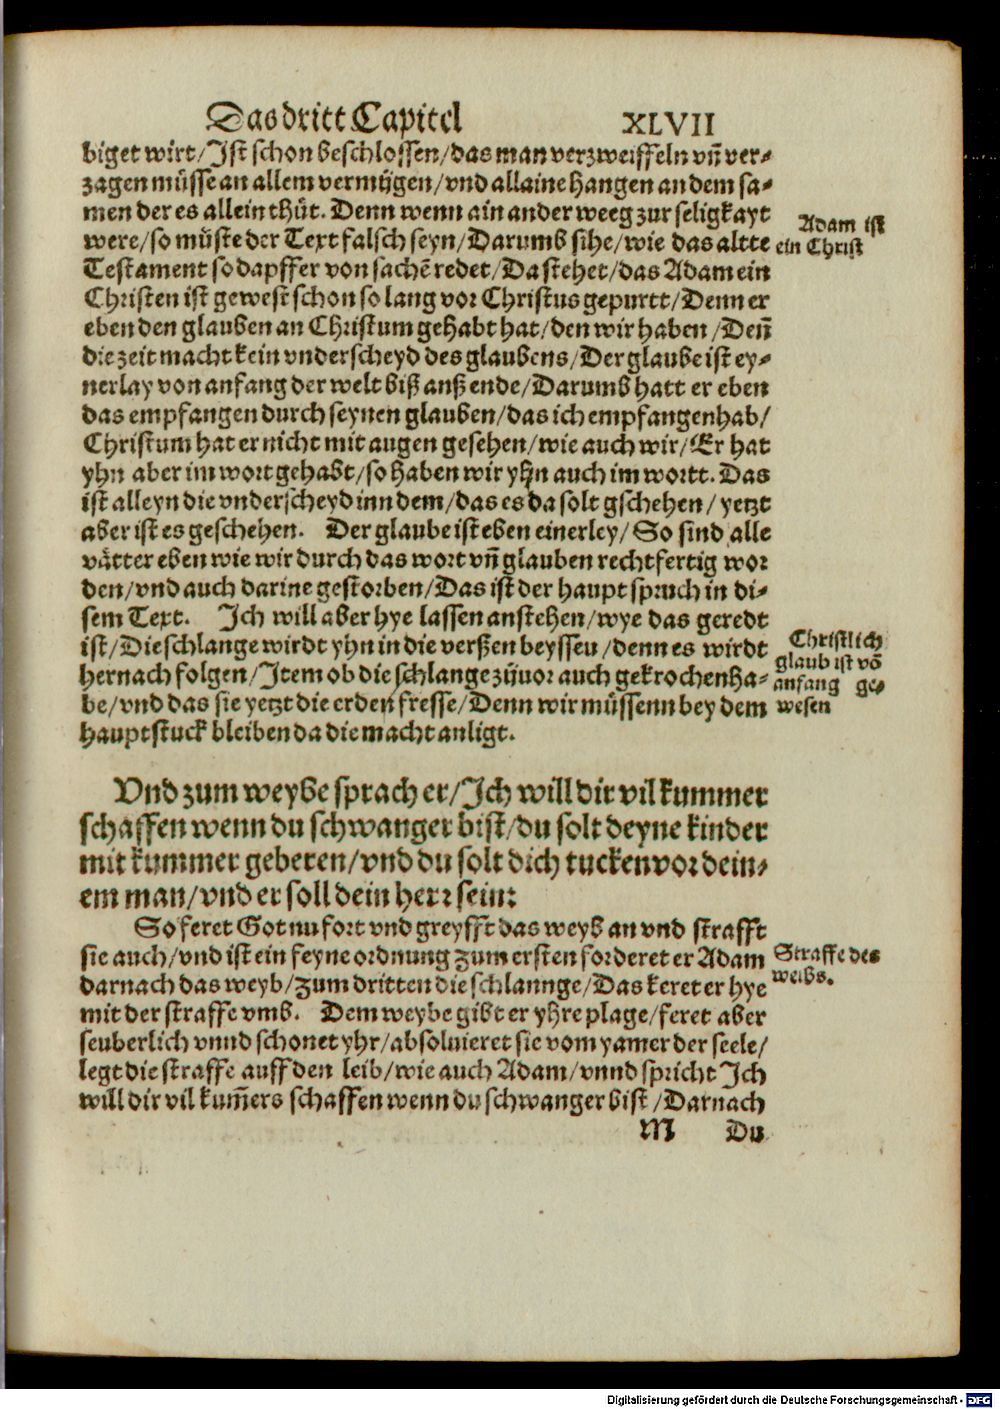 Das dritt Capitel XLVII
biget wirt/Ist schon beschlossen/das man verzweiffeln vñ ver-
zagen müsse an allem vermügen/vnd allaine hangen an dem sa-
men der es allein thůt. Denn wenn ain ander weeg zur seligkayt
were/so müste der Text falsch seyn/Darumb sihe/wie das altte
Testament so dapffer von sachē redet/Da stehet/das Adam ein
Christen ist gewest schon so lang vor Christus gepurtt/Denn er
eben den glauben an Christum gehabt hat/den wir haben/Deñ
die zeit macht kein vnderscheyd des glaubens/Der glaube ist ey-
nerlay von anfang der welt biß anß ende/Darumb hatt er eben
das empfangen durch seynen glauben/das ich empfangen hab/
Christum hat er nicht mit augen gesehen/wie auch wir/Er hat
yhn aber im wort gehabt/so haben wir yhn auch im wortt. Das
ist alleyn die vnderscheyd inn dem/das es da solt gschehen/yetzt
aber ist es geschehen. Der glaube ist eben einerley/So sind alle
vätter eben wie wir durch das wort vñ glauben rechtfertig wor
den/vnd auch darine gestorben/Das ist der haupt spruch in di-
sem Text. Ich will aber hye lassen anstehen/wye das geredt
ist/Die schlange wirdt yhn in die verßen beyssen/denn es wirdt
hernach folgen/Item ob die schlange zůuor auch gekrochen ha-
be/vnd das sie yetzt die erden fresse/Denn wir müssenn bey dem
hauptstuck bleiben da die macht anligt.
Adam ist
ein Christ
Christlich
glaub ist vō
anfang ge-
wesen
Vnd zum weybe sprach er/Ich will dir vil kummer
schaffen wenn du schwanger bist/du solt deyne kinder
mit kummer geberen/vnd du solt dich tucken vor dein-
em man/vnd er soll dein herr sein:
So feret Got nu fort vnd greyfft das weyb an vnd strafft
sie auch/vnd ist ein feyne ordnung zum ersten forderet er Adam
darnach das weyb/zum dritten die schlannge/Das keret er hye
mit der straffe vmb. Dem weybe gibt er yhre plage/feret aber
seuberlich vnnd schonet yhr/absoluieret sie vom yamer der seele/
legt die straffe auff den leib/wie auch Adam/vnnd spricht Ich
will dir vil kum̄ers schaffen wenn du schwanger bist/Darnach
Straffe des
weibs.
M Du
Digitalisierung gefördert durch die Deutsche Forschungsgemeinschaft - DFG